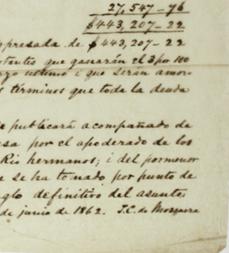 27,547-76
$443,207-22
presada de $443,207-22
ganarán el 3 por 100
ultimo i que serán amor-
s términos que toda la deuda
publicará acompañado de
por el apoderado de los
Rio hermanos; i del pormenor
e se ha tomado por punto de
glo definitivo del asunto
de junio de 1862. T.C. de Mosquera